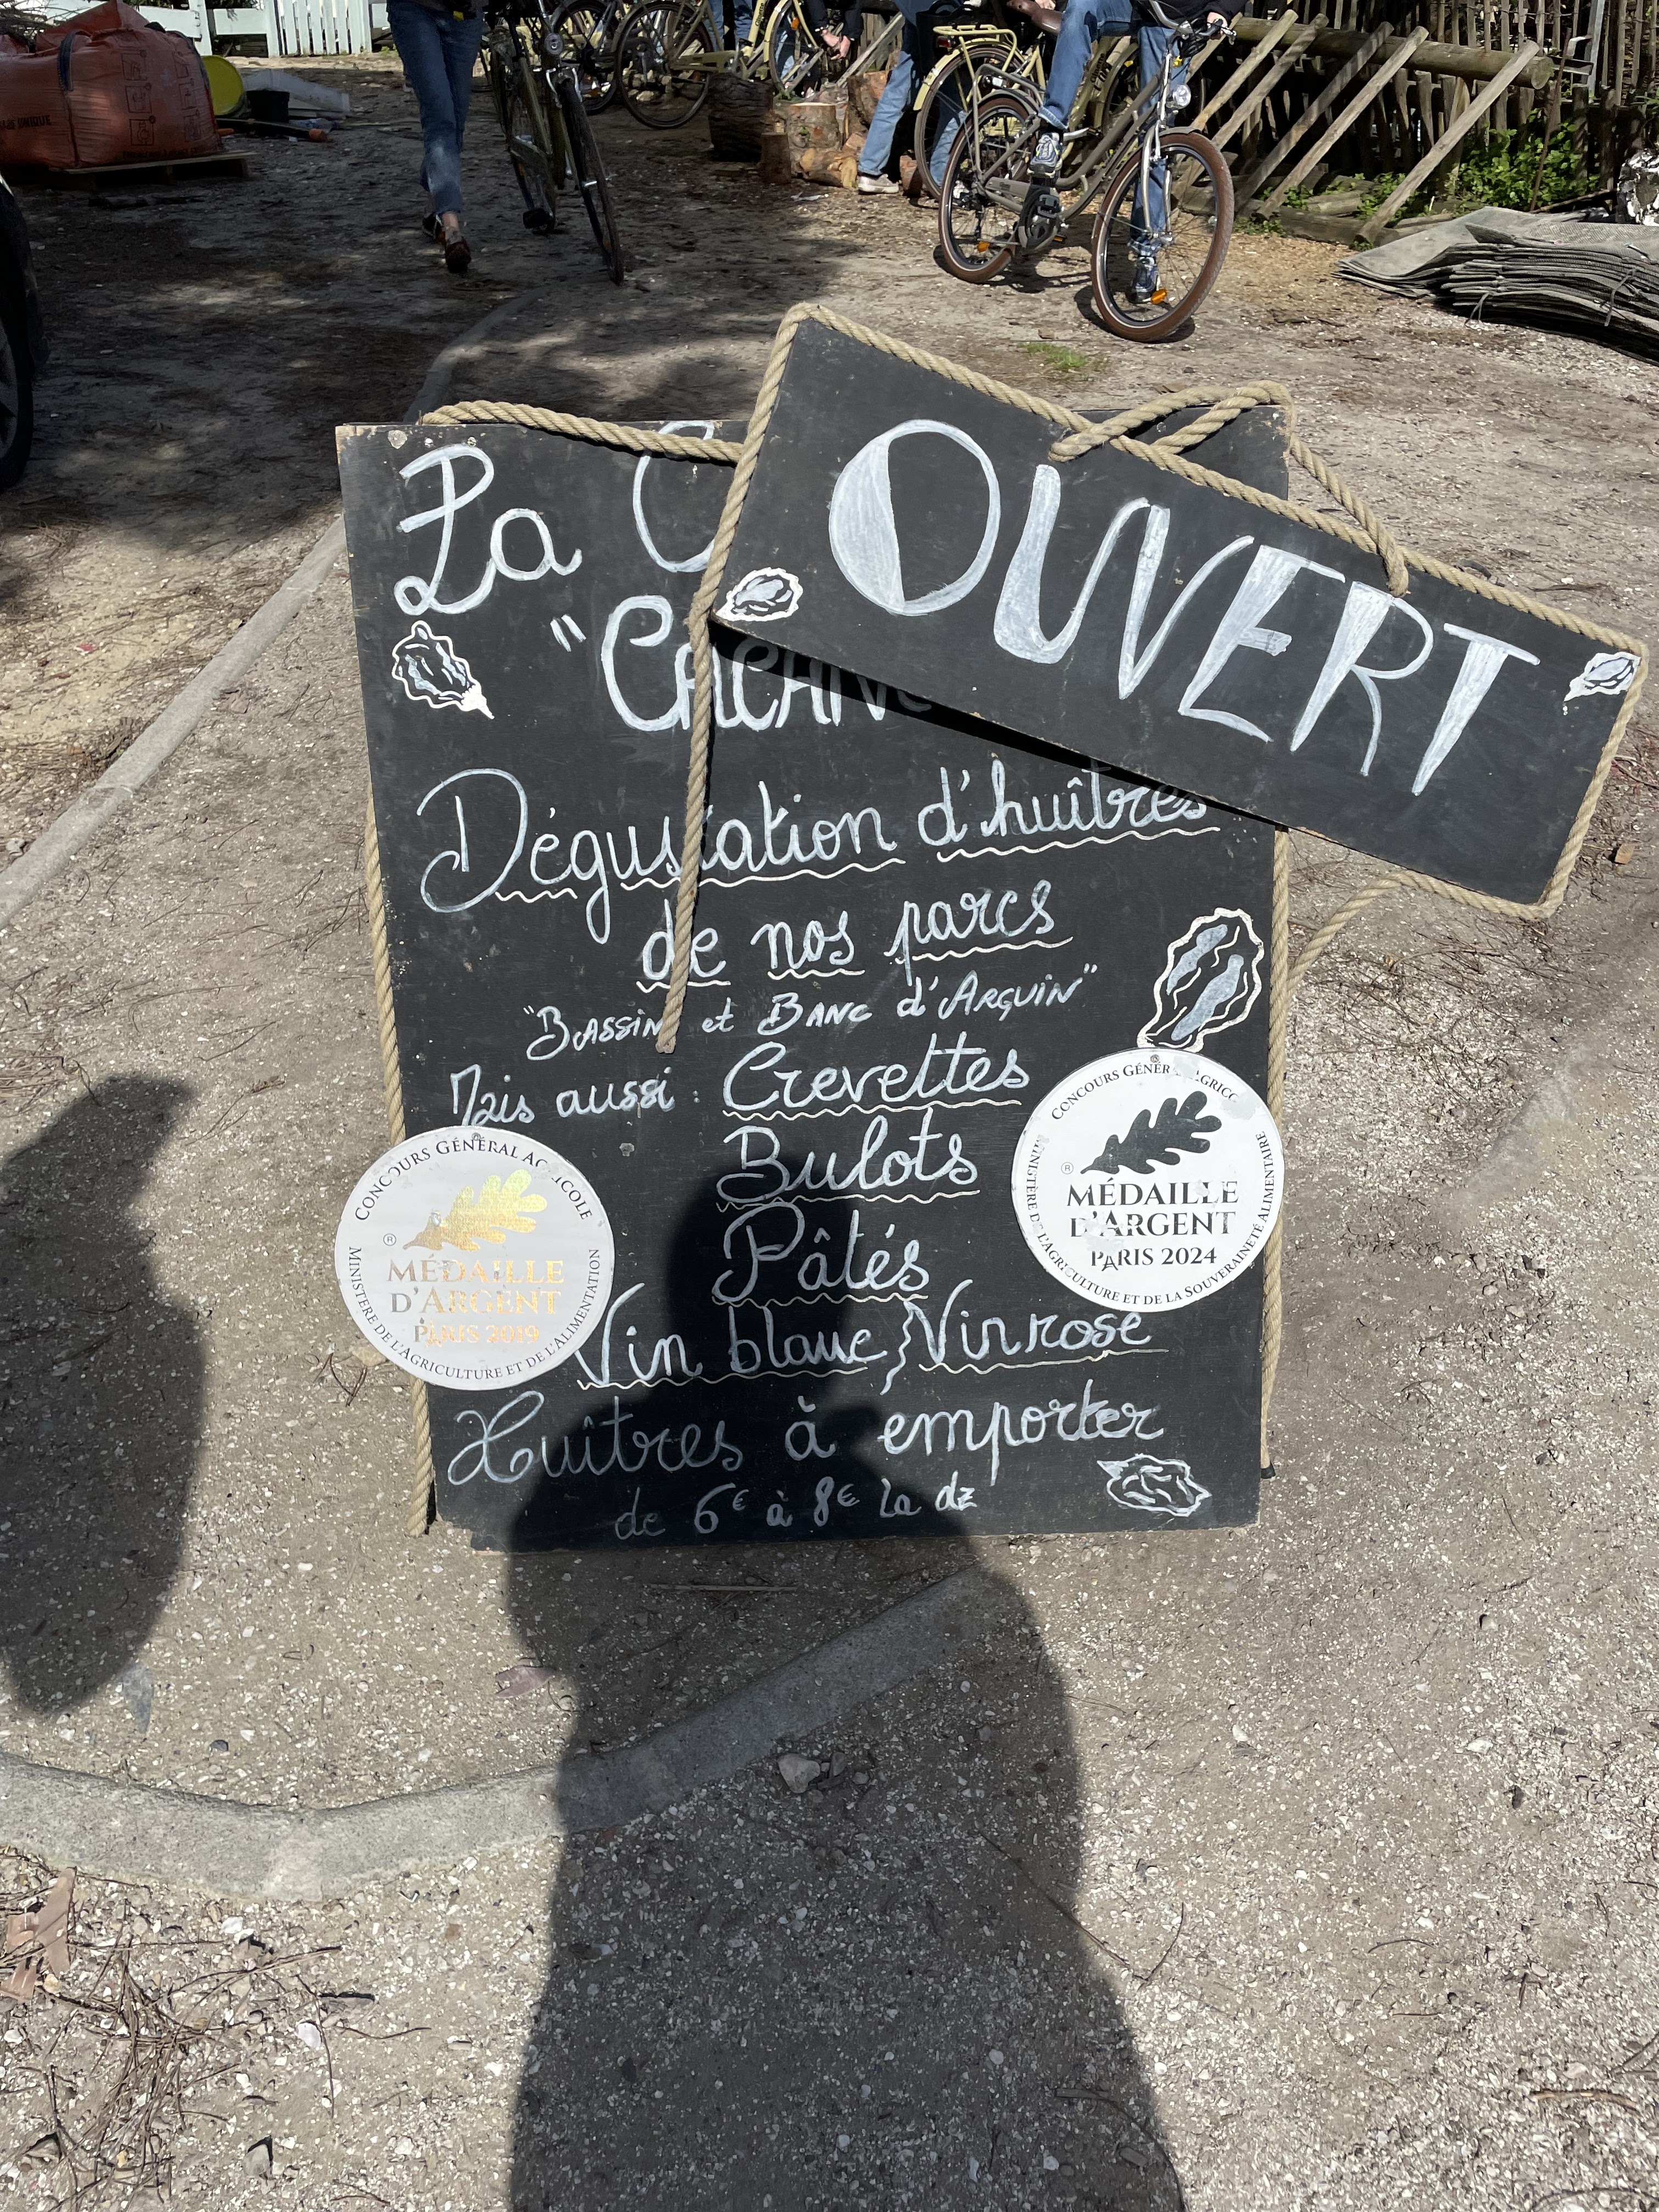 OUVERT
La
Dégustation d'huîtres
de nos parcs
"Bassin et Banc d'Arguin"
Mais aussi : Crevettes
Bulots
Pâtés
Vin blanc Vin rosé
Huîtres à emporter
de 6€ à 8€ la dz
CONCOURS GÉNÉRAL AGRICOLE
MÉDAILLE
D'ARGENT
PARIS 2019
MINISTÈRE DE L'AGRICULTURE ET DE L'ALIMENTATION
CONCOURS
MÉDAILLE
D'ARGENT
PARIS 2024
MINISTÈRE DE L'AGRICULTURE ET DE LA SOUVERAINETÉ ALIMENTAIRE
UNIQUE